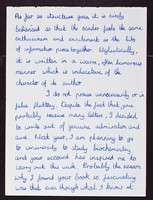 As far as structure goes it is nicely
balanced so that the reader feels the same
enthusiasm and excitement as the bits
of information piece together. Stylistically,
it is written in a warm, often humorous
manner which is indicative of the
character of its author.
I do not praise unnecessarily or in
false flattery. Despite the fact that you
probably receive many letters, I decided
to write out of genuine admiration and
awe. Next year, I am planning to go
to university to study biochemistry
and your account has inspired me to
carry out this wish. Probably the reason
why I found your book so fascinating
was that even though what I knew of